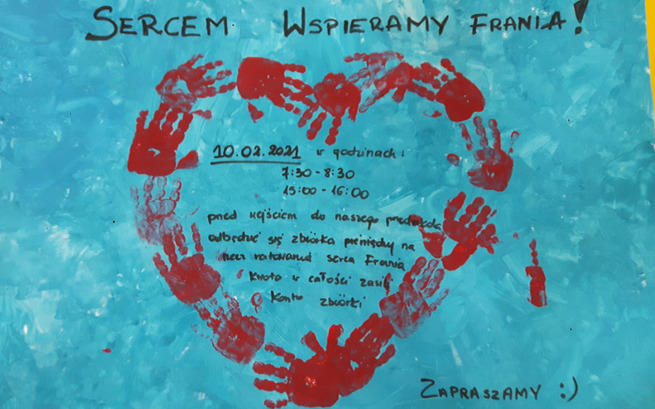 SERCEM WSPIERAMY FRANIA!
10.02.2021 w godzinach:
7:30 - 8:30
15:00 - 16:00
przed wejściem do naszego przedszkola
odbędzie się zbiórka pieniędzy na
rzecz ratowania serca Frania
Kwota w całości zasili
Konto zbiórki
ZAPRASZAMY :)